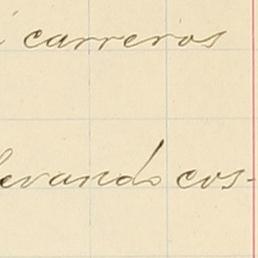 carreros
levando cos-